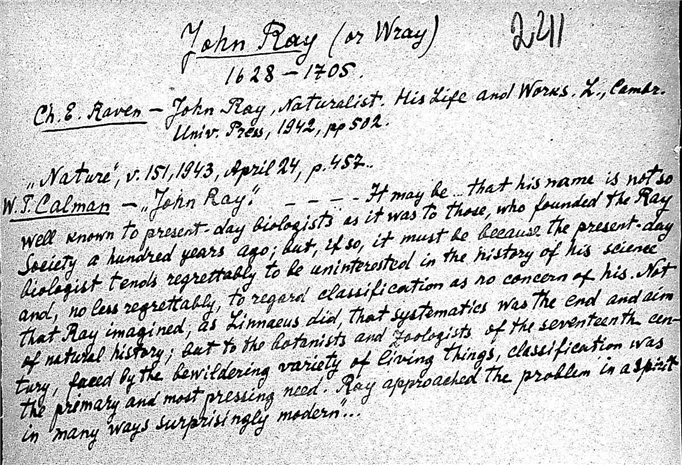 John Ray (or Wray) 2211
1628 – 1705.
Ch. E. Raven – John Ray, Naturalist. His Life and Works. L., Cambr.
Univ. Press, 1942, pp 502.
„Nature", v. 151, 1943, April 24, p. 457..
W. T. Calman – „John Ray." – – – – It may be ... that his name is not so
well known to present-day biologists as it was to those, who founded the Ray
Society a hundred years ago; but, if so, it must be because the present-day
biologist tends regrettably to be uninterested in the history of his science
and, no less regrettably, to regard classification as no concern of his. Not
that Ray imagined, as Linnaeus did, that systematics was the end and aim
of natural history; but to the botanists and zoologists of the seventeenth cen-
tury, faced by the bewildering variety of living things, classification was
the primary and most pressing need. Ray approached the problem in a spirit
in many ways surprisingly modern"...